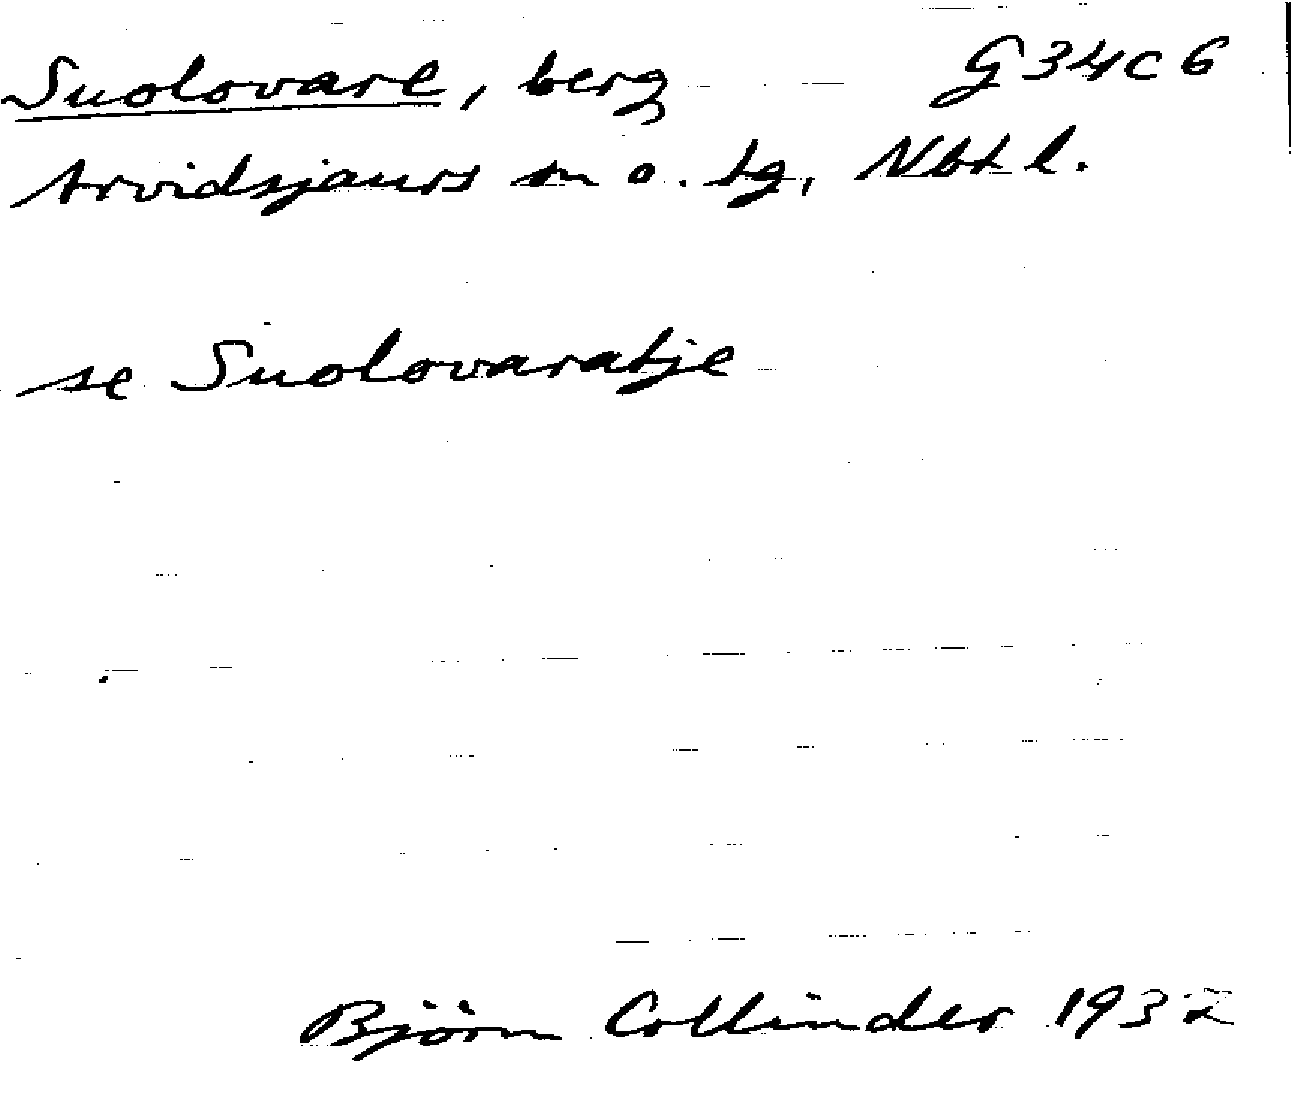 Suolovare, berg G34c6
Arvidsjaurs sn o. tg, Nbt l.
se Suolovaratje
Björn Collinder 1932